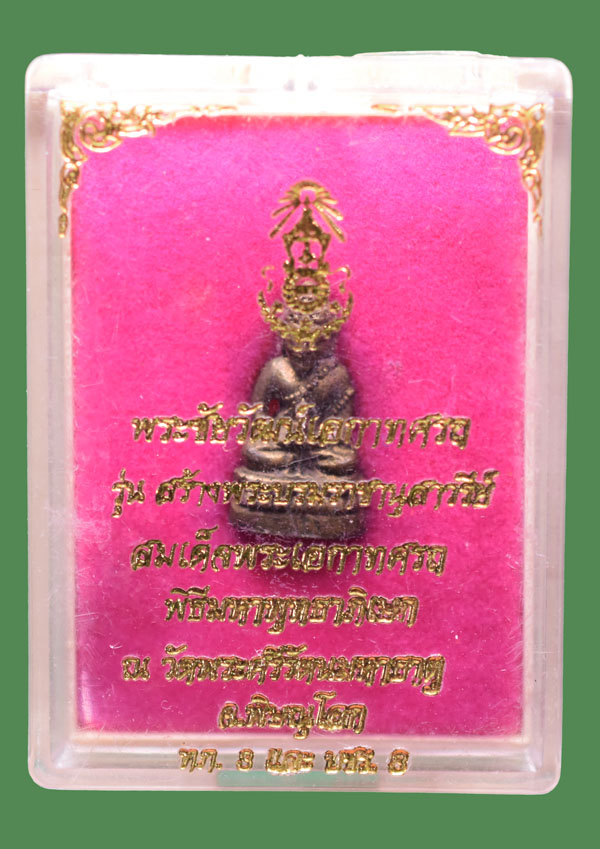 พระชัยวัฒน์เอกาทศรถ
รุ่น สร้างพระบรมราชานุสาวรีย์
สมเด็จพระเอกาทศรถ
พิธีมหาพุทธาภิเษก
ณ วัดพระศรีรัตนมหาธาตุ
จ.พิษณุโลก
ทภ. 3 และ บชร. 3